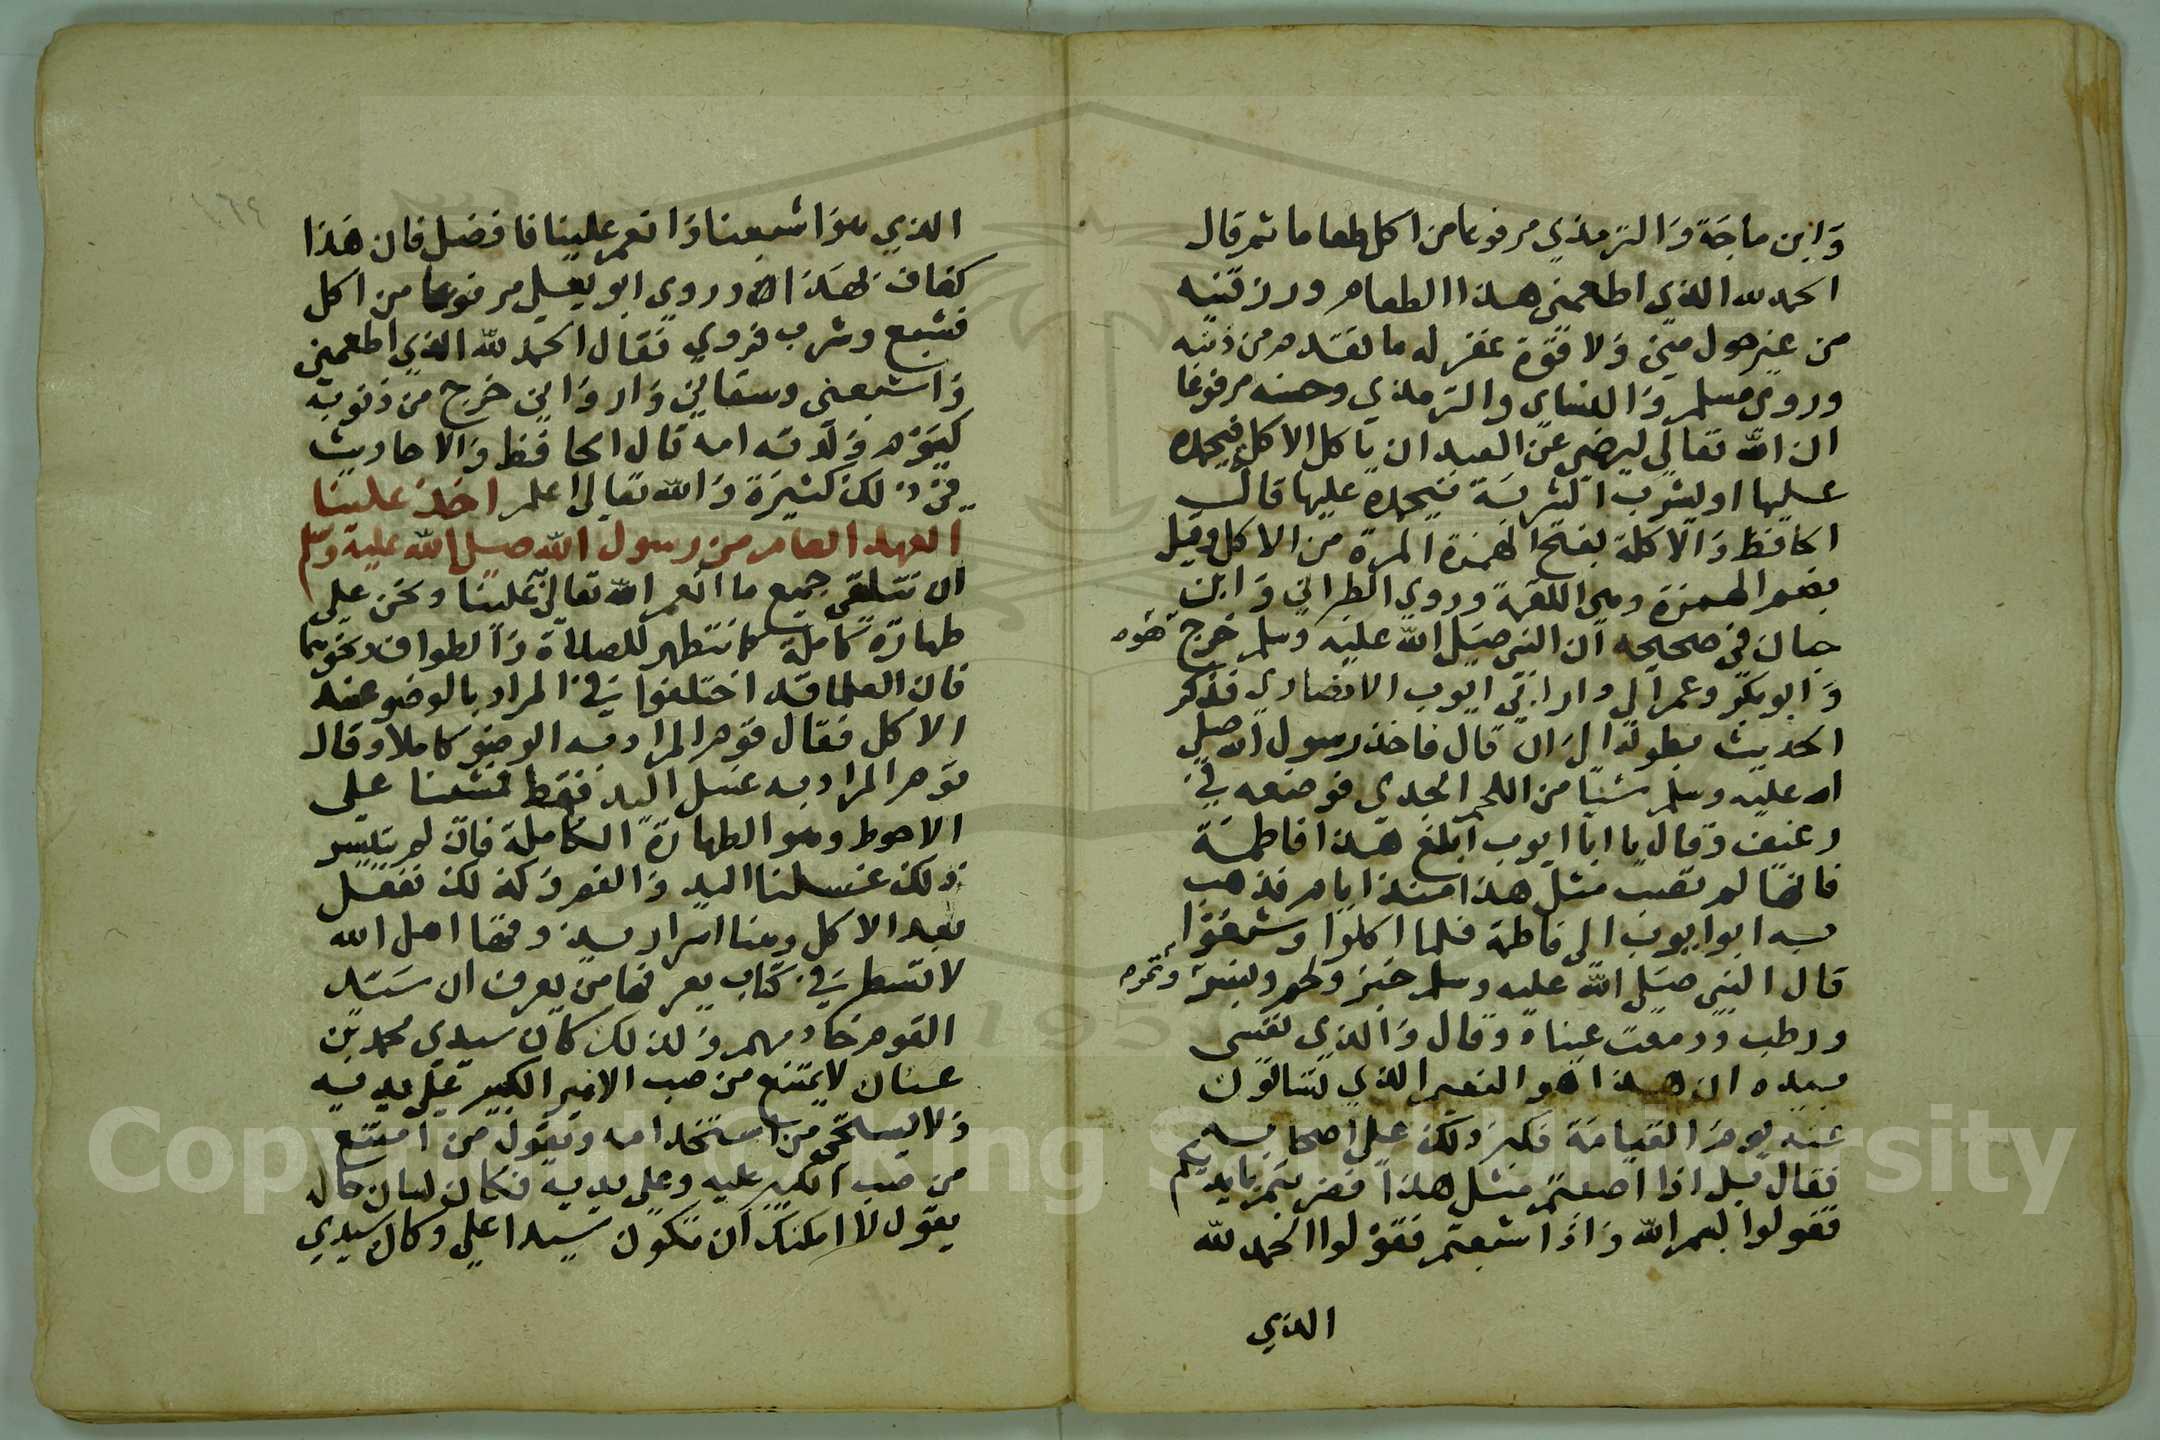 وابن ماجة والترمذي مرفوعا من اكل طعاما ثم قال
الحمد لله الذي اطعمني هذا الطعام ورزقنيه
من غير حول مني ولا قوة غفر له ما تقدم من ذنبه
وروى مسلم والنساى والترمذي وحسنه مرفوعا
ان الله تعالى ليرضى عن العبد ان ياكل الاكلة فيحمده
عليها او يشرب الشربة فيحمده عليها قال
الحافظ والاكلة بفتح الهمزة المرة من الاكل وقيل
بضم الهمزة وهى اللقمة وروى الطبراني وابن
حبان في صحيحه ان النبي صلى الله عليه وسلم خرج هو
وابو بكر وعمر الى دار ابي ايوب الانصاري فذكر
الحديث بطوله الى ان قال فاخذ رسول الله صلى
الله عليه وسلم شيا من اللحم الجدي فوضعه في
رغيف وقال يا ابا ايوب ابلغ هذا فاطمة
فانها لم تصب مثل هذا منذ ايام فذهب
به ابو ايوب الى فاطمة فلما اكلوا وشبعوا
قال النبي صلى الله عليه وسلم خبز ولحم وبسر وتمر
ورطب ودمعت عيناه وقال والذي نفسى
بيده ان هذا هو النعيم الذي تسالون
عنه يوم القيامة فكبر ذلك على اصحابه
فقال بل اذا اصبتم مثل هذا فضربتم بايديكم
فقولوا بسم الله واذا شبعتم فقولوا الحمد لله
الذي
الذي هو اشبعنا وانعم علينا فافضل فان هذا
كفاف لهذا اه وروى ابو يعلى مرفوعا من اكل
فشبع وشرب فروى فقال الحمد لله الذي اطعمني
واشبعني وسقاني واروانى خرج من ذنوبه
كيوم ولدته امه قال الحافظ والاحاديث
في ذلك كثيرة والله تعالى اعلم اخذ علينا
العهد العام من رسول الله صلى الله عليه وسلم
ان نتلقى جميع ما انعم الله تعالى علينا ونحن على
طهارة كاملة كما نتطهر للصلاة والطواف ونحوهما
فان العلما قد اختلفوا في المراد بالوضو عند
الاكل فقال قوم المراد به الوضو كاملا وقال
قوم المراد به غسل اليد فقط فمشينا على
الاحوط وهو الطهارة الكاملة فان لم يتيسر
ذلك غسلنا اليد والفم وكذلك نفعل
بعد الاكل وهنا اسرار يذوقها اهل الله
لا تسطر في كتاب يعرفها من يعرف ان سيد
القوم خادمهم ولذلك كان سيدي محمد بن
عنان لا يمتنع من صب الامير الكبير على يديه
ولا يستحى من استخدامه ويقول من امتنع
من صب الكبير عليه وعلى يديه فكان لسان حاله
يقول لا امكنك ان تكون سيدا على وكان سيدي